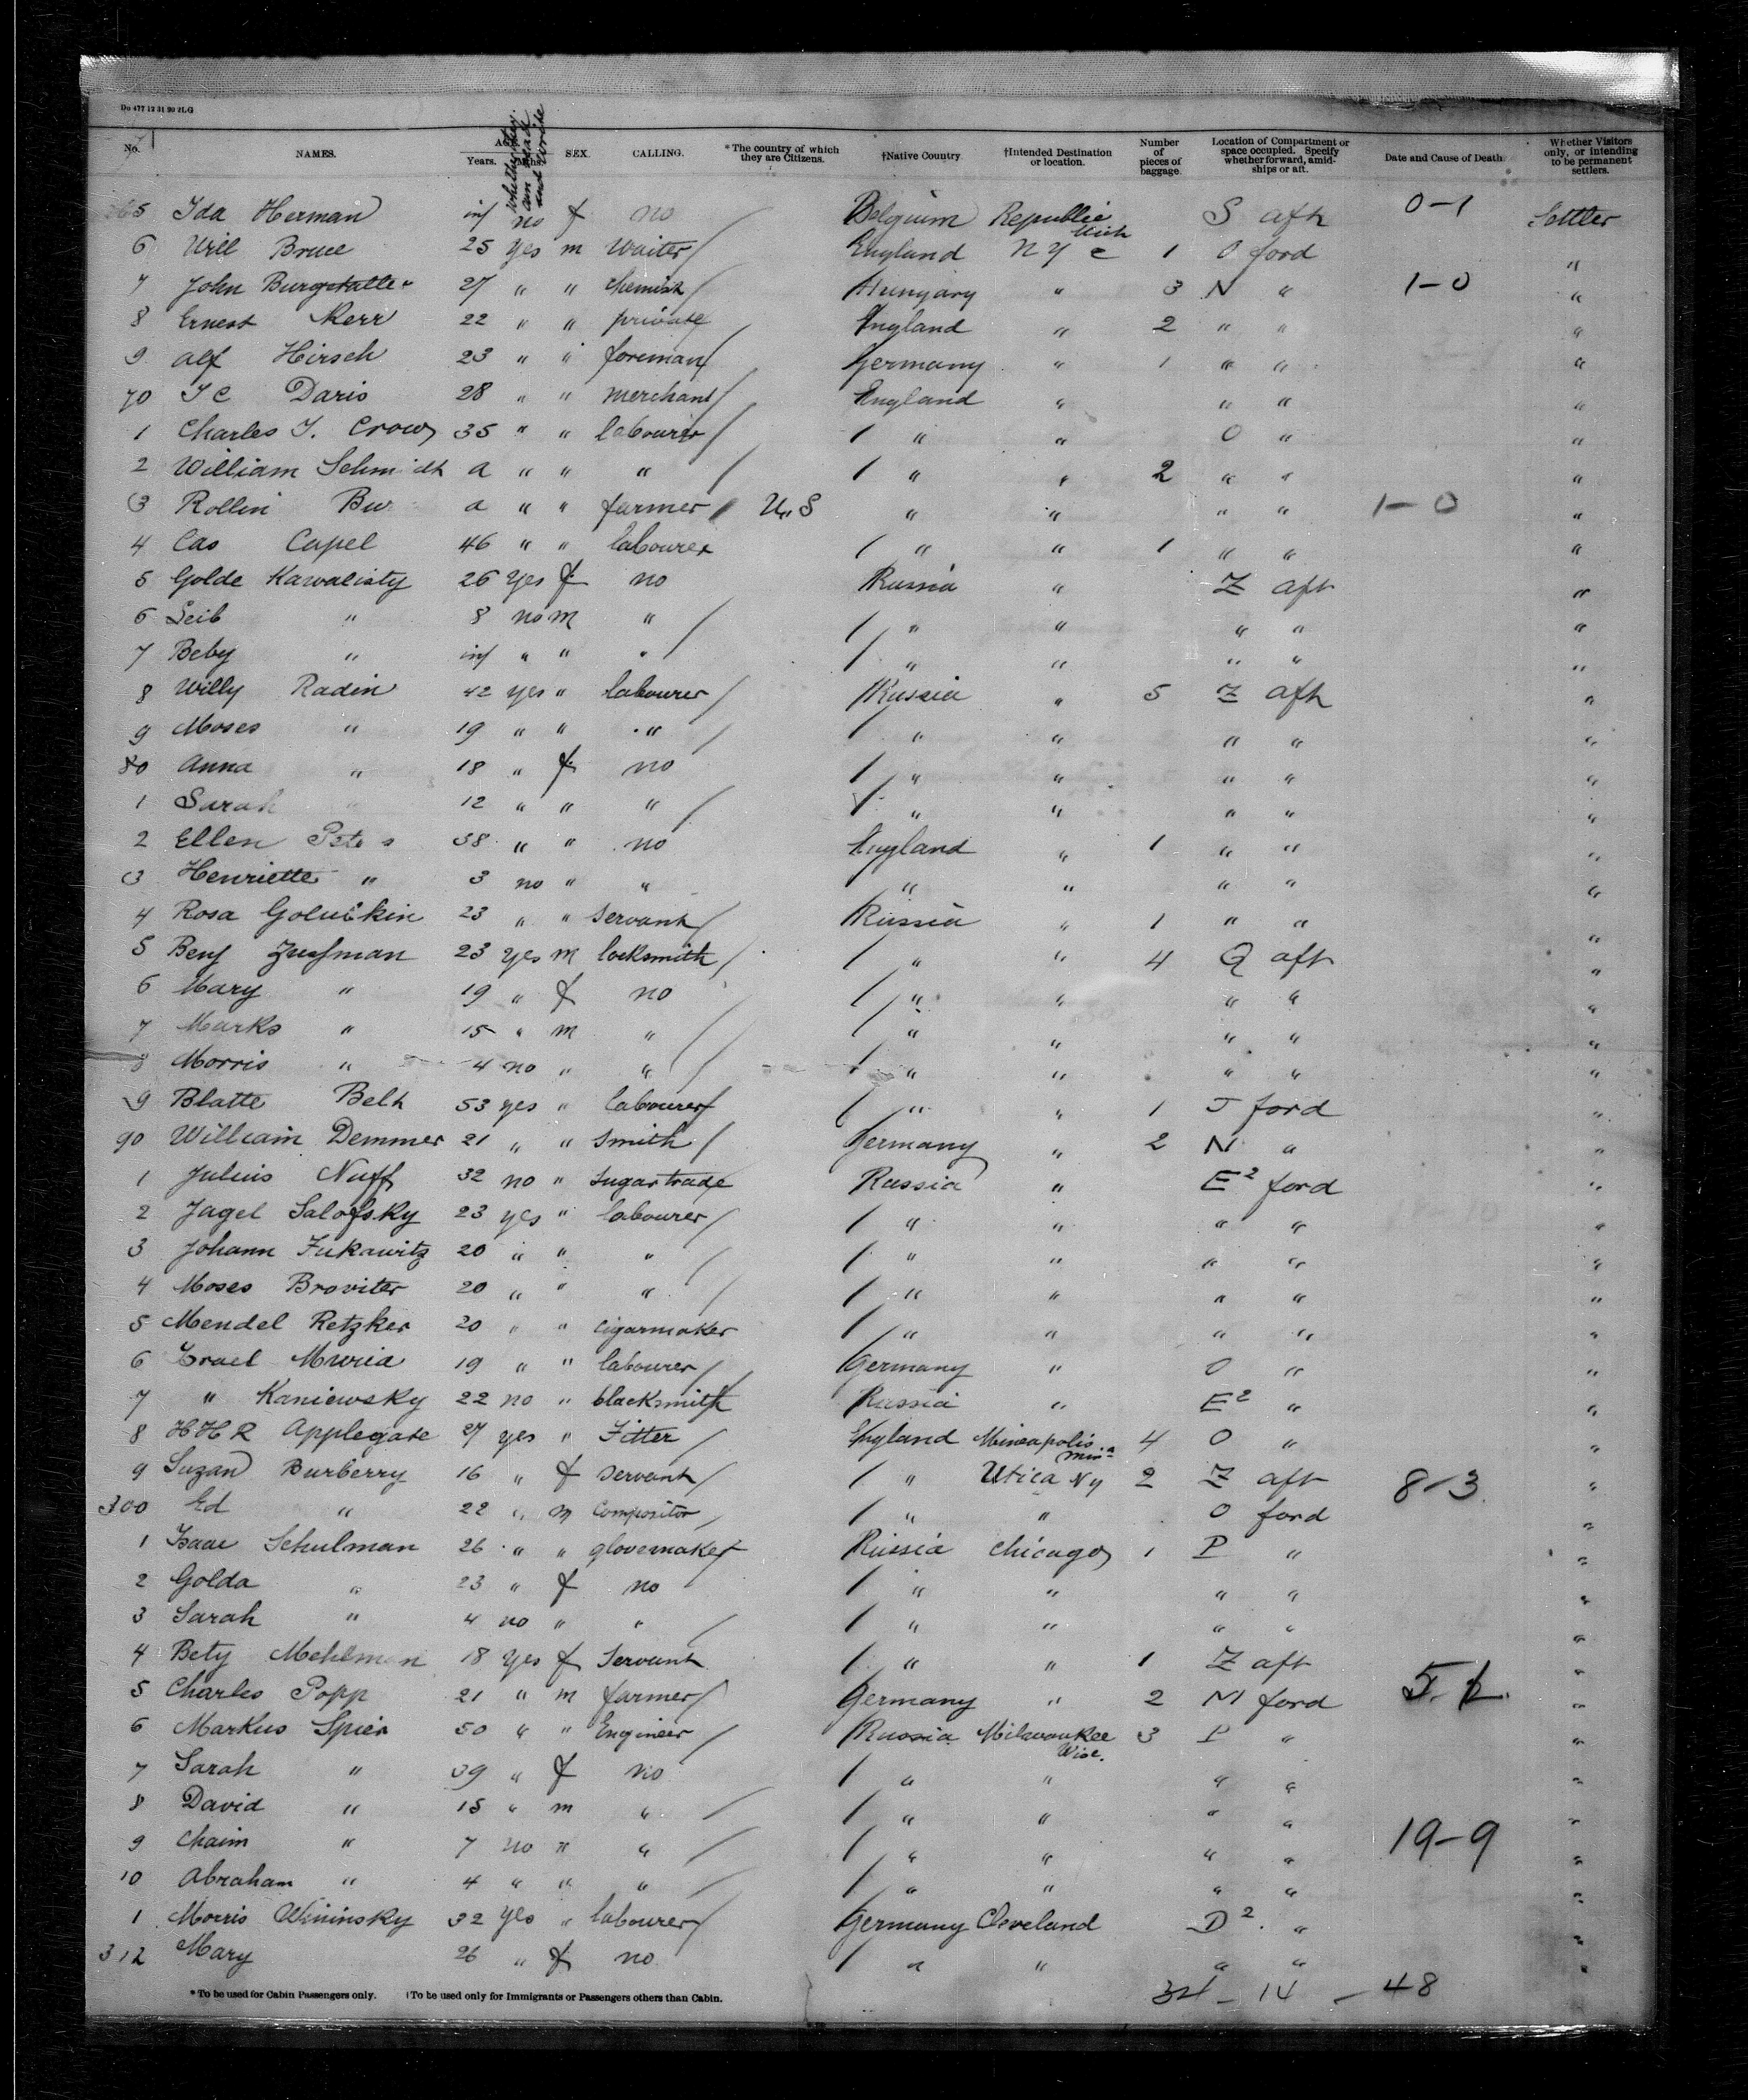 Do 477 12 31 90 2LG
No. NAMES. Age. Years. Mths. whether they can read and write SEX. CALLING. *The country of which they are Citizens. †Native Country †Intended Destination or location. Number of pieces of baggage. Location of Compartment or space occupied. Specify whether forward, amidships or aft. Date and Cause of Death Whether Visitors only, or intending to be permanent settlers.
265 Ida Herman inf no f no Belgium Republic Mich S aft 0-1 Settler
6 Will Bruce 25 yes m waiter England N Y c 1 O ford "
7 John 27 " " chemist Hungary " 3 N " 1-0 "
8 Ernest Kerr 22 " " private England " 2 " " "
9 Alf Hirsch 23 " " foreman Germany " 1 " " "
70 I C Daris 28 " " merchant England " " " "
1 Charles J. Crow 35 " " labourer " " O " "
2 William Schmidt a " " " " " 2 " " "
3 Rollin a " " farmer U.S " " " " 1-0 "
4 Cas Capel 46 " " labourer " " 1 " " "
5 Golde Kawalisty 26 yes f no Russia " Z aft "
6 Leib " 8 no m " " " " " "
7 Beby " inf " " " " " " " "
8 Willy Radin 42 yes " labourer Russia " 5 Z aft "
9 Moses " 19 " " " " " " " "
80 Anna " 18 " f no " " " " "
1 Sarah " 12 " " " " " " " "
2 Ellen 38 " " no England " 1 " " "
3 Henriette " 3 no " " " " " " "
4 Rosa Golutkin 23 " " servant Russia " 1 " " "
5 Benj Zussman 23 yes m locksmith " " 4 Q aft "
6 Mary " 19 " f no " " " " "
7 Marks " 15 " m " " " " " "
8 Morris " 4 no " " " " " " "
9 Blatte Belt 53 yes " labourer " " 1 J ford "
90 William Demmer 21 " " smith Germany " 2 N " "
1 Julius Nuff 32 no " sugar trade Russia " E² ford "
2 Jagel Salofsky 23 yes " labourer " " " " "
3 Johann Fukawitz 20 " " " " " " " "
4 Moses Broviter 20 " " " " " " " "
5 Mendel Retzker 20 " " cigarmaker " " " " "
6 Israel Muria 19 " " labourer Germany " O " "
7 " Kaniewsky 22 no " blacksmith Russia " E² " "
8 H H R Applegate 27 yes " Fitter England Mineapolis Minna 4 O " "
9 Suzan Burberry 16 " f servant " Utica Ny 2 Z aft 8-3 "
300 Ed " 22 " m compositor " " O ford "
1 Isaac Schulman 26 " " glovemaker Russia Chicago 1 P " "
2 Golda " 23 " f no " " " " "
3 Sarah " 4 no " " " " " " "
4 Bety Mehlman 18 yes f servant " " 1 Z aft "
5 Charles Popp 21 " m farmer Germany " 2 N ford "
6 Markus Spier 50 " " Engineer Russia Milwaukee Wisc. 3 P " "
7 Sarah " 39 " f no " " " " "
8 David " 15 " m " " " " " "
9 Chaim " 7 no " " " " " " 19-9 "
10 Abraham " 4 " " " " " " " "
1 Morris Wininsky 32 yes " labourer Germany Cleveland D² " "
312 Mary 26 " f no " " " " "
34 - 14 - 48
*To be used for Cabin Passengers only. †To be used only for Immigrants or Passengers others than Cabin.